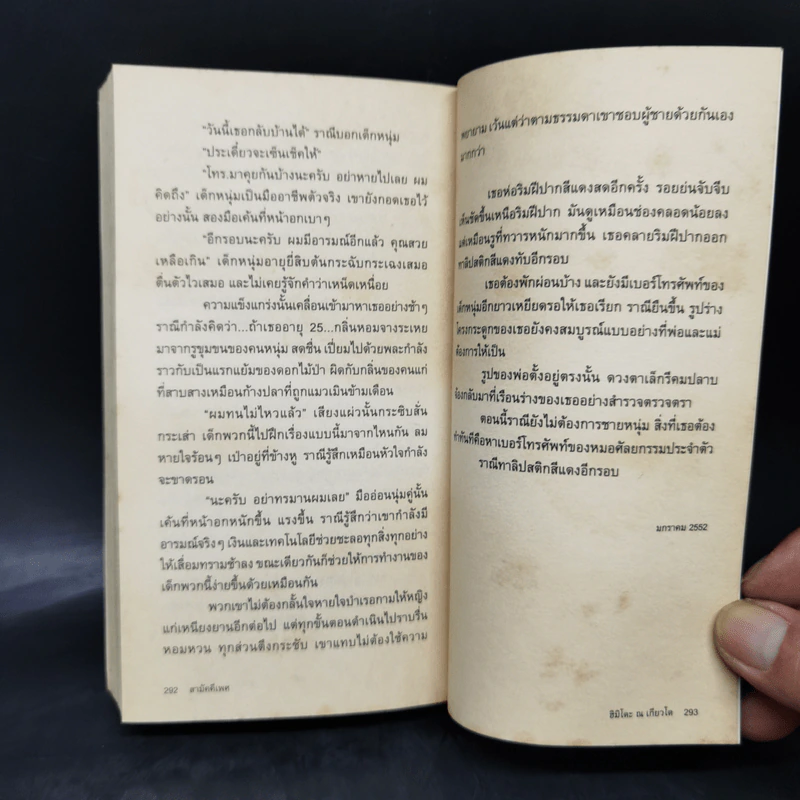 "วันนี้เธอกลับบ้านได้" ราณีบอกเด็กหนุ่ม
"ประเดี๋ยวจะเซ็นเช็คให้"
"โทร.มาคุยกันบ้างนะครับ อย่าหายไปเลย ผม
คิดถึง" เด็กหนุ่มเป็นมืออาชีพตัวจริง เขายังกอดเธอไว้
อย่างนั้น สองมือเค้นที่หน้าอกเบาๆ
"อีกรอบนะครับ ผมมีอารมณ์อีกแล้ว คุณสวย
เหลือเกิน" เด็กหนุ่มอายุยี่สิบต้นกระฉับกระเฉงเสมอ
ตื่นตัวไวเสมอ และไม่เคยรู้จักคำว่าเหน็ดเหนื่อย
ความแข็งแกร่งนั้นเคลื่อนเข้ามาหาเธออย่างช้าๆ
ราณีกำลังคิดว่า...ถ้าเธออายุ 25...กลิ่นหอมจางระเหย
มาจากรูขุมขนของคนหนุ่ม สดชื่น เปี่ยมไปด้วยพละกำลัง
ราวกับเป็นแรกแย้มของดอกไม้ป่า ผิดกับกลิ่นของคนแก่
ที่สาบสางเหมือนก้างปลาที่ถูกแมวเมินข้ามเดือน
"ผมทนไม่ไหวแล้ว" เสียงแผ่วนั้นกระซิบสั่น
กระเส่า เด็กพวกนี้ไปฝึกเรื่องแบบนี้มาจากไหนกัน ลม
หายใจร้อนๆ เป่าอยู่ที่ข้างหู ราณีรู้สึกเหมือนหัวใจกำลัง
จะขาดรอน
"นะครับ อย่าทรมานผมเลย" มืออ่อนนุ่มคู่นั้น
เค้นที่หน้าอกหนักขึ้น แรงขึ้น ราณีรู้สึกว่าเขากำลังมี
อารมณ์จริงๆ เงินและเทคโนโลยีช่วยชะลอทุกสิ่งทุกอย่าง
ให้เสื่อมทรามช้าลง ขณะเดียวกันก็ช่วยให้การทำงานของ
เด็กพวกนี้ง่ายขึ้นด้วยเหมือนกัน
พวกเขาไม่ต้องกลั้นใจหายใจบำเรอกามให้หญิง
แก่เหนียงยานอีกต่อไป แต่ทุกขั้นตอนดำเนินไปราบรื่น
หอมหวน ทุกส่วนตึงกระชับ เขาแทบไม่ต้องใช้ความ
292 สามัคคีเพศ
พยายาม เว้นแต่ว่าตามธรรมดาเขาชอบผู้ชายด้วยกันเอง
มากกว่า
เธอห่อริมฝีปากสีแดงสดอีกครั้ง รอยย่นจับจีบ
เห็นชัดขึ้นเหนือริมฝีปาก มันดูเหมือนช่องคลอดน้อยลง
แต่เหมือนรูที่ทวารหนักมากขึ้น เธอคลายริมฝีปากออก
ทาลิปสติกสีแดงทับอีกรอบ
เธอต้องพักผ่อนบ้าง และยังมีเบอร์โทรศัพท์ของ
เด็กหนุ่มอีกยาวเหยียดรอให้เธอเรียก ราณียืนขึ้น รูปร่าง
โครงกระดูกของเธอยังคงสมบูรณ์แบบอย่างที่พ่อและแม่
ต้องการให้เป็น
รูปของพ่อตั้งอยู่ตรงนั้น ดวงตาเล็กรีคมปลาบ
จ้องกลับมาที่เรือนร่างของเธออย่างสำรวจตรวจตรา
ตอนนี้ราณียังไม่ต้องการชายหนุ่ม สิ่งที่เธอต้อง
ทำทันทีคือหาเบอร์โทรศัพท์ของหมอศัลยกรรมประจำตัว
ราณีทาลิปสติกสีแดงอีกรอบ
มกราคม 2552
ฮิมิโตะ ณ เกียวโต 293